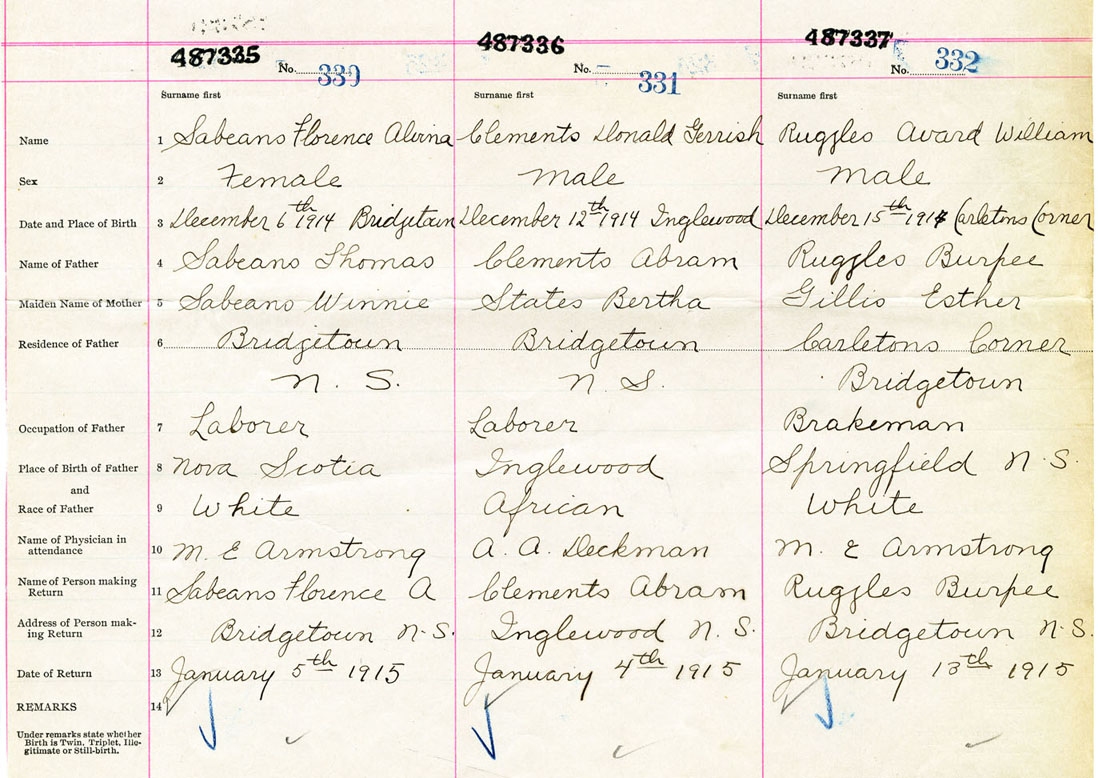 487335 487336 487337
No. 330 No. 331 No. 332
Surname first Surname first Surname first
Name 1 Sabeans Florence Alvina Clements Donald Gerrish Ruggles Avard William
Sex 2 Female Male Male
Date and Place of Birth 3 December 6th 1914 Bridgetown December 12th 1914 Inglewood December 15th 1914 Carletons Corner
Name of Father 4 Sabeans Thomas Clements Abram Ruggles Burpee
Maiden Name of Mother 5 Sabeans Winnie States Bertha Gillis Esther
Residence of Father 6 Bridgetown Bridgetown Carletons Corner
N. S. N S. Bridgetown
Occupation of Father 7 Laborer Laborer Brakeman
Place of Birth of Father 8 Nova Scotia Inglewood Springfield N.S.
and
Race of Father 9 White African White
Name of Physician in
attendance 10 M. E Armstrong A. A. Deckman M. E Armstrong
Name of Person making
Return 11 Sabeans Florence A Clements Abram Ruggles Burpee
Address of Person mak-
ing Return 12 Bridgetown N.S. Inglewood N. S. Bridgetown N.S.
Date of Return 13 January 5th 1915 January 4th 1915 January 13th 1915
REMARKS 14
Under remarks state whether
Birth is Twin, Triplet, Ille-
gitimate or Still-birth.